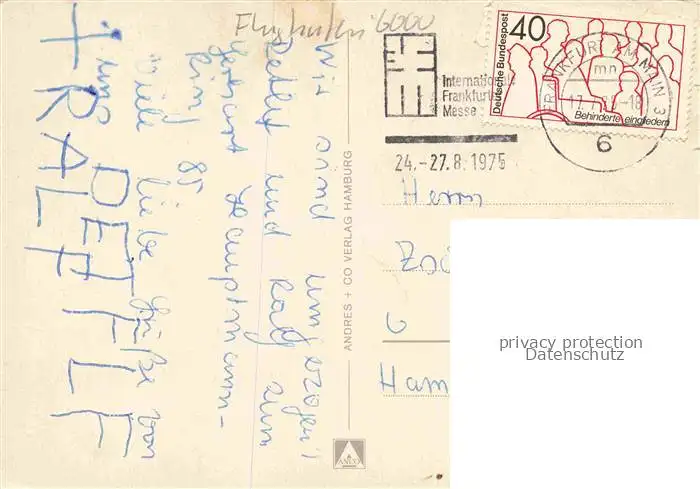 Flughafen 6000
Wir sind umgezogen!
Detlef und Ralf zum
Gerhart Hauptmann-
Ring 85
Viele liebe Grüße von
uns
DETLEF
+ RALF
ANDRES + CO VERLAG HAMBURG
ANCO
Internationale
Frankfurter
Messe
24.-27.8.1975
Deutsche Bundespost
40
Behinderte eingliedern
FRANKFURT AM MAIN 3
mn
6
Herrn
6
Ham
privacy protection
Datenschutz